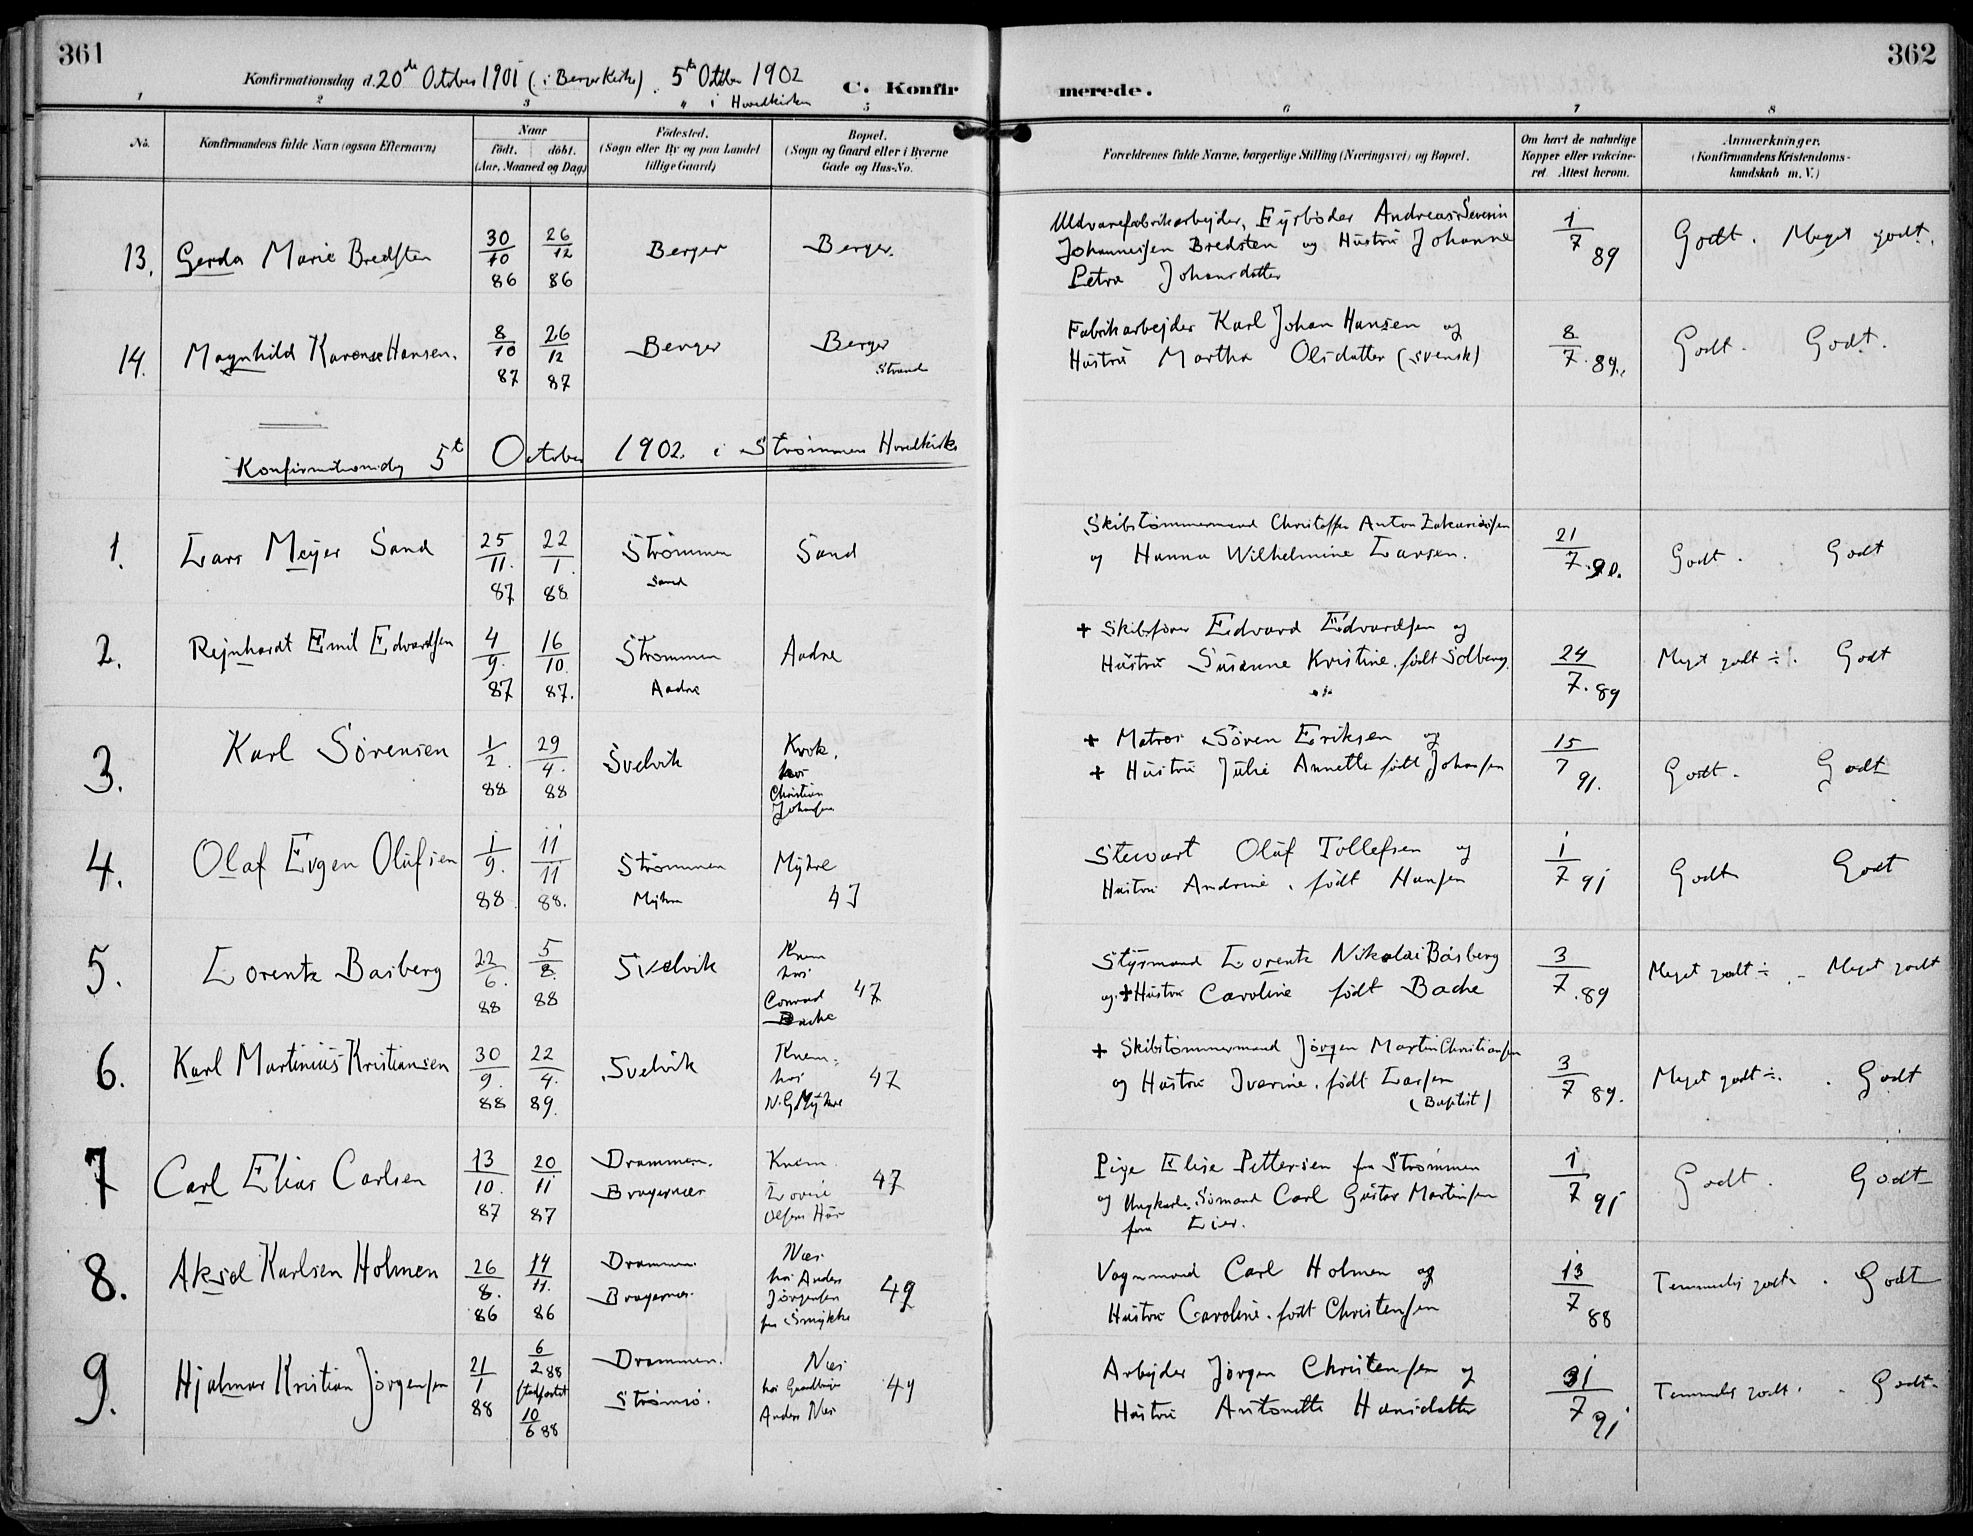 361
362
Konfirmationsdag d. 20de October 1901 (i Berger Kirke). 5te October 1902
" i Hovedkirken
C. Konfirmerede.
1 2 3 5 6 7 8
No.
Konfirmandens fulde Navn (ogsaa Efternavn)
Naar
født. døbt.
(Aar, Maaned og Dag)
Fødested.
(Sogn eller By og paa Landet
tillige Gaard)
Bopæl.
(Sogn og Gaard eller i Byerne
Gade og Hus-No.
Forældrenes fulde Navne, borgerlige Stilling (Næringsvei) og Bopæl.
Om havt de naturlige
Kopper eller vakcine-
ret. Attest herom.
Anmærkninger.
(Konfirmandens Kristendoms-
kundskab m. V.)
13. Gerda Marie Bredsten 30/10 86 26/12 86 Berger Berger.
Uldvarefabrikarbejder, Fyrbøder Andreas Severin
Johannessen Bredsten og Hustru Johanne
Petra Johansdatter
1/7 89 Godt. Meget godt.
14. Magnhild Karense Hansen. 8/10 87 26/12 87 Berger Berger
Strand
Fabrikarbejder Karl Johan Hansen og
Hustru Martha Olsdatter (svensk)
8/7 89. Godt. Godt.
Konfirmationsdag 5t October 1902 i Strømmens Hovedkirke
1. Lars Meyer Sand 25/11 87 22/1 88 Strømmen
Sand
Sand
Skibstømmermand Christoffer Anton Zakariassen
og Hanna Wilhelmine Larsen.
21/7 90. Godt. Godt
2. Rejnhardt Emil Edvardsen 4/9 87 16/10 87. Strømmen
Aadne
Aadne
+ Skibsfører Edvard Edvardsen og
Hustru Susanne Kristine, født Solberg.
24/7 89 Meget godt ÷. Godt
3. Karl Sørensen 1/2 88 29/4 88 Svelvik
Krok.
hos
Christian
Johansen
+ Matros Søren Eriksen og
+ Hustru Julie Annette født Johansen
15/7 91. Godt. Godt
4. Olaf Evgen Olufsen 1/9 88 11/11 88. Strømmen
Myhre
Myhre
47
Stewart Oluf Tollefsen og
Hustru Andrine, født Hansen
1/7 91 Godt Godt
5. Lorentz Basberg 22/6 88 5/8 88 Svelvik
Knem
hos
Conrad
Bache
47
Styrmand Lorentz Nikolai Basberg
og + Hustru Caroline født Bache
3/7 89 Meget godt ÷. Meget godt
6. Karl Martinius Kristiansen 30/9 88 22/4 89. Svelvik
Knem.
hos
N. G. Myhre
47
+ Skibstømmermand Jørgen Martin Christiansen
og Hustru Iverine, født Larsen
(Baptist)
3/7 89. Meget godt ÷. Godt
7 Carl Elias Carlsen 13/10 87 20/11 87 Drammen.
Bragernæs
Knem.
Lovise
Olsens Hus
47
Pige Elise Pettersen fra Strømmen
og Ungkarl, Sømand Carl Gustav Martinsen
fra Lier.
1/7 91 Godt. Godt
8. Aksel Karlsen Holmen 26/8 86 14/11 86 Drammen.
Bragernæs.
Næs
hos Anders
Jørgensen
49
Vognmand Carl Holmen og
Hustru Caroline, født Christensen
13/7 88 Temmelig godt. Godt
9. Hjalmar Kristian Jørgensen 21/1 88 6/2 88
stadfæstet
10/6 88
Drammen.
Strømsø.
Næs
hos Gaardbruger
Anders Næs
49
Arbejder Jørgen Christensen og
Hustru Antonette Hansdatter
31/7 91 Temmelig godt. Godt.